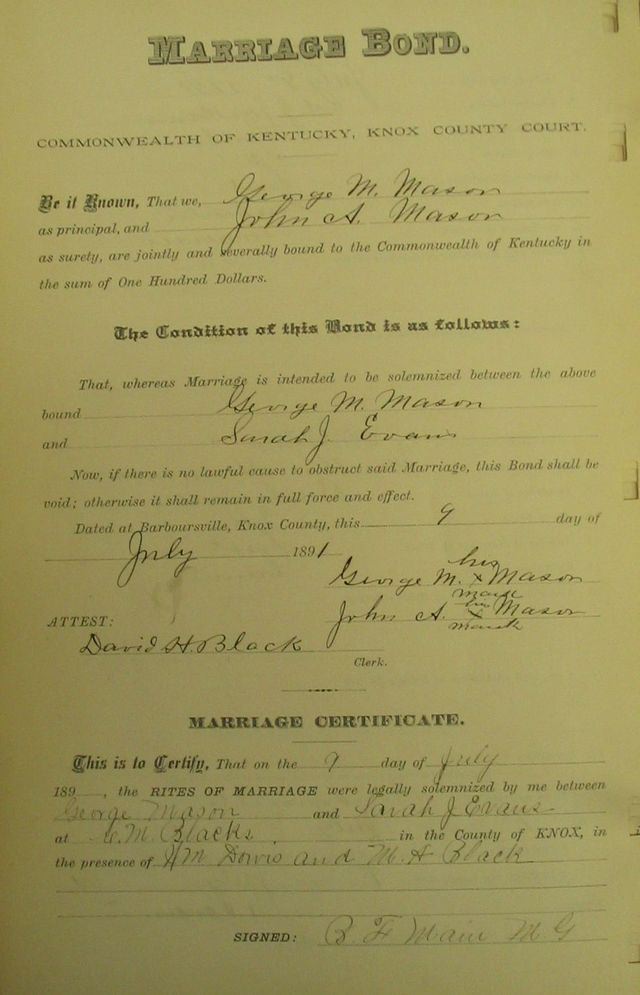 MARRIAGE BOND.
COMMONWEALTH OF KENTUCKY, KNOX COUNTY COURT.
Be it Known, That we, George M. Mason
as principal, and John A. Mason
as surety, are jointly and severally bound to the Commonwealth of Kentucky in
the sum of One Hundred Dollars.
The Condition of this Bond is as follows:
That, whereas Marriage is intended to be solemnized between the above
bound George M. Mason
and Sarah J. Evans
Now, if there is no lawful cause to obstruct said Marriage, this Bond shall be
void; otherwise it shall remain in full force and effect.
Dated at Barboursville, Knox County, this 9 day of
July 1891
his
George M. x Mason
mark
his
ATTEST: John A. x Mason
mark
David H Black
Clerk.
MARRIAGE CERTIFICATE.
This is to Certify, That on the 9 day of July
189 , the RITES OF MARRIAGE were legally solemnized by me between
George Mason and Sarah J Evans
at C.M. Blacks. in the County of KNOX, in
the presence of Dowis and M. A Black
SIGNED: B. F Main M G